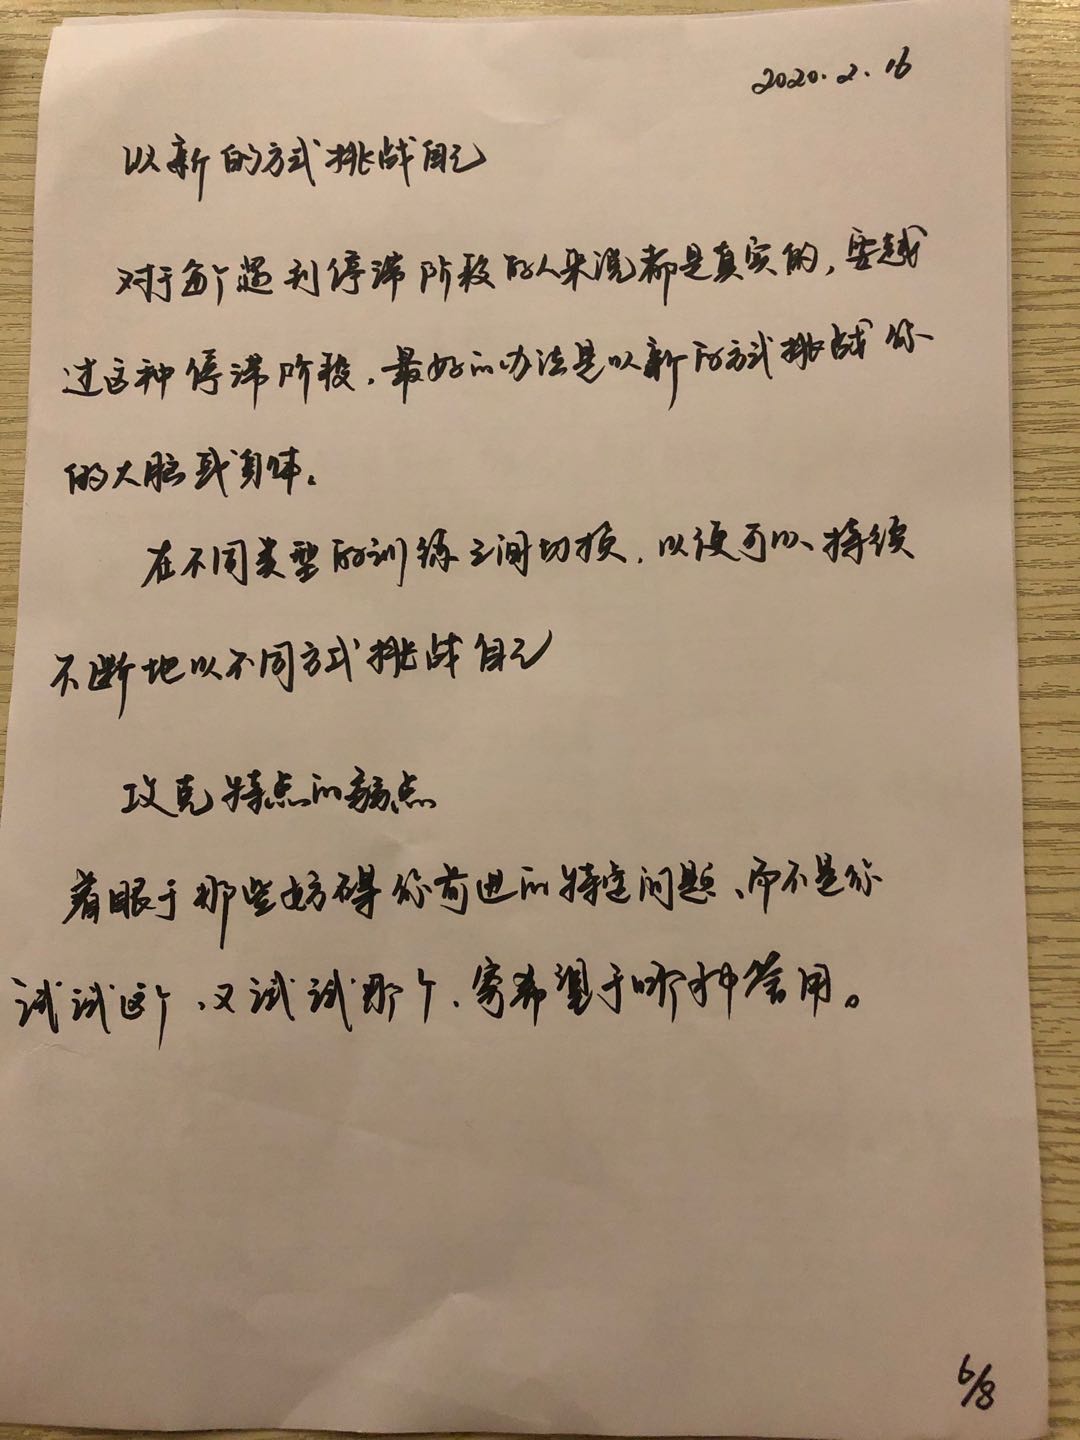 2020.2.16
以新的方式挑战自己
对于每个遇到停滞阶段的人来说都是真实的，要越
过这种停滞阶段，最好的办法是以新的方式挑战你
的大脑或身体。
在不同类型的训练之间切换，以便可以持续
不断地以不同方式挑战自己
攻克特点的弱点
着眼于那些妨碍你前进的特定问题、而不是你
试试这个、又试试那个、寄希望于哪种管用。
6/8